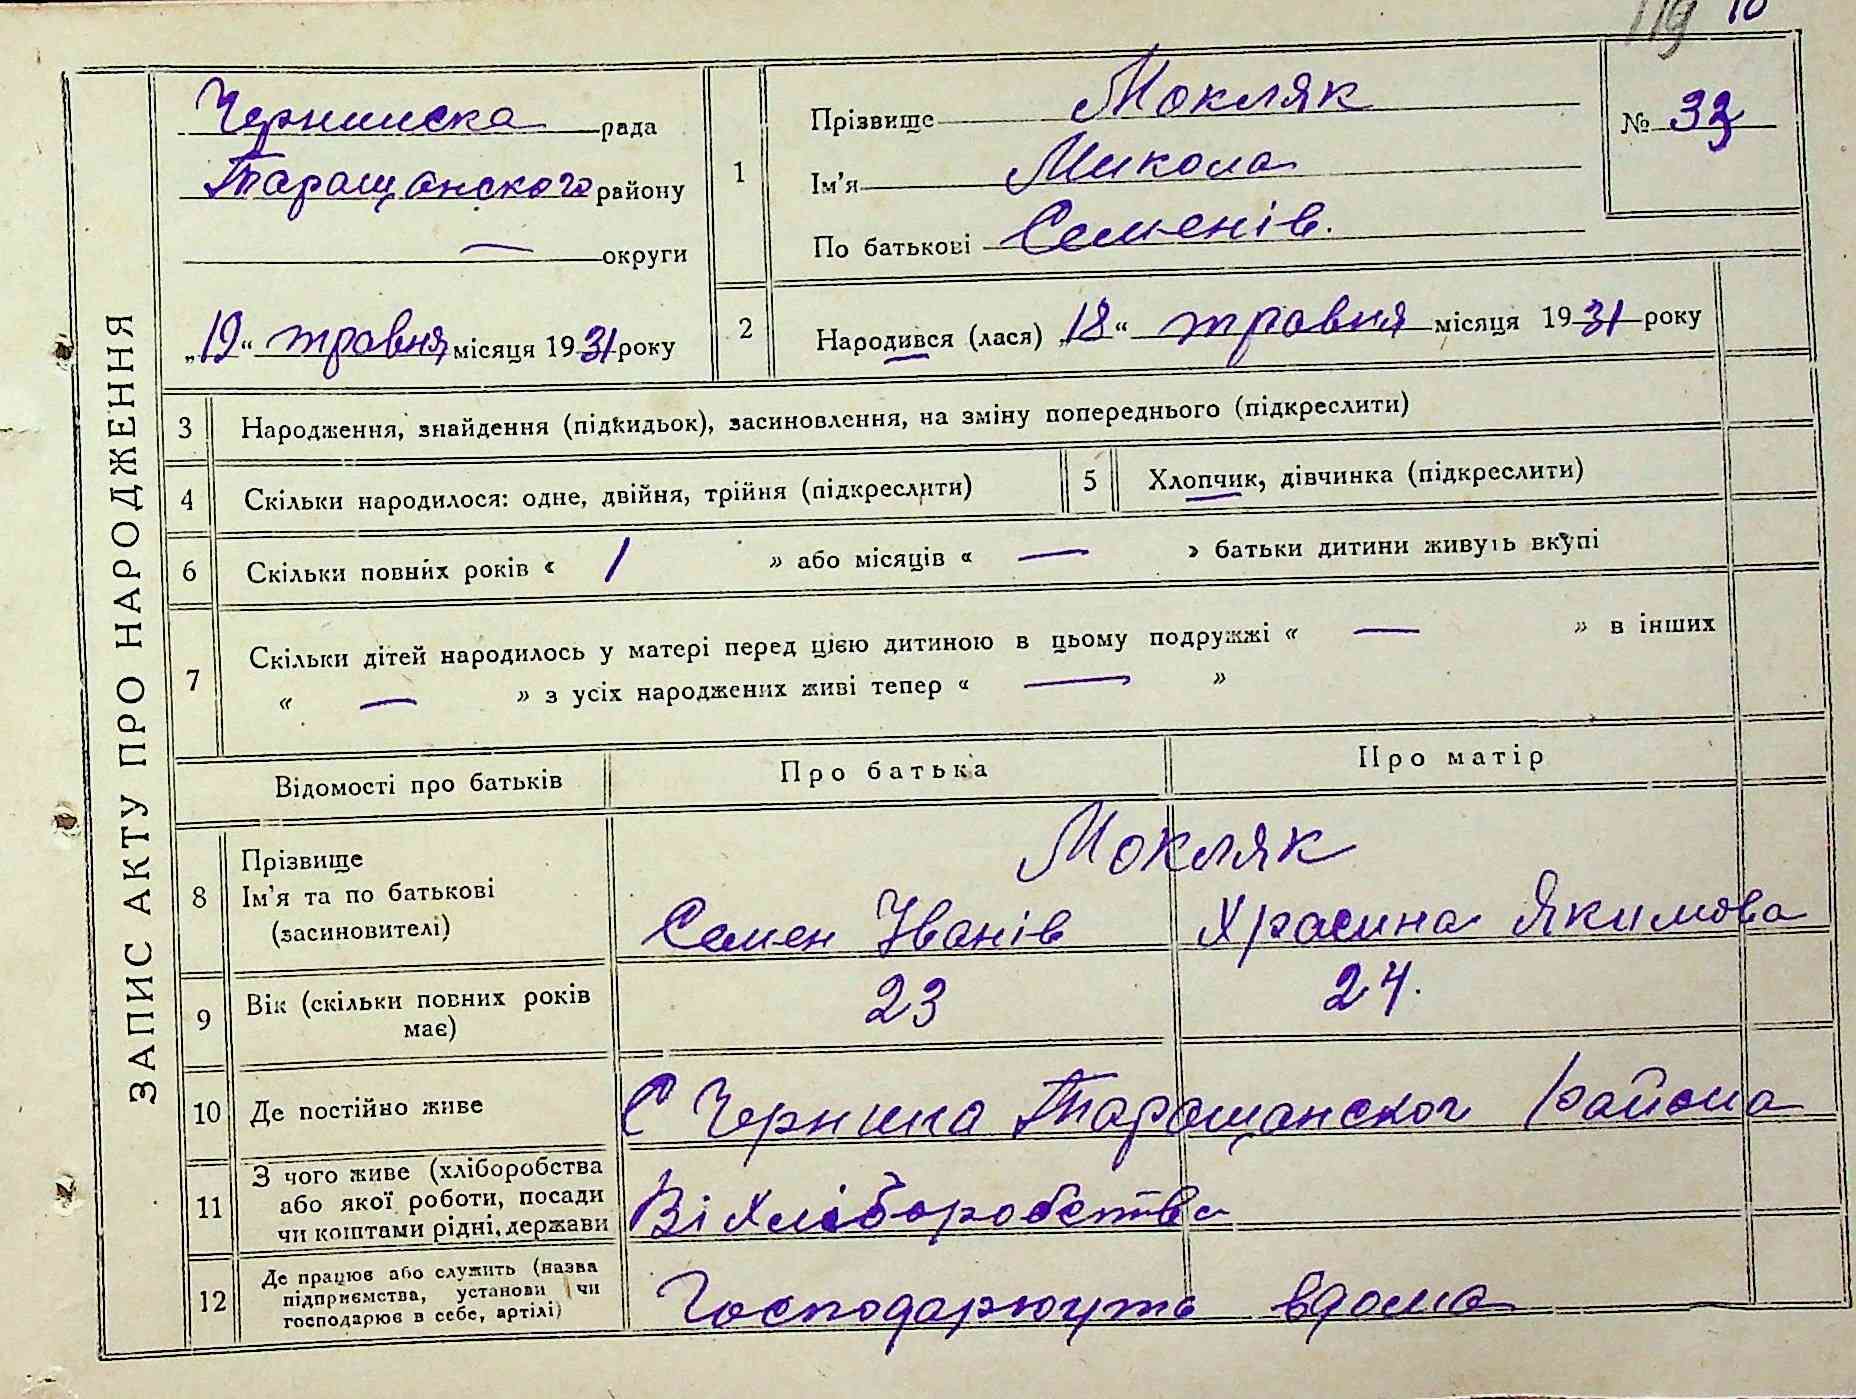 119 10
ЗАПИС АКТУ ПРО НАРОДЖЕННЯ
Чернинска рада
Таращанского району
— округи
„19“ травня місяця 1931 року
1
Прізвище Мокляк
Ім'я Микола
По батькові Семенів.
№ 33
2
Народився (лася) „18“ травня місяця 1931 року
3 Народження, знайдення (підкидьок), засиновлення, на зміну попереднього (підкреслити)
4 Скільки народилося: одне, двійня, трійня (підкреслити)
5 Хлопчик, дівчинка (підкреслити)
6 Скільки повних років « 1 » або місяців « — » батьки дитини живуть вкупі
7 Скільки дітей народилось у матері перед цією дитиною в цьому подружжі « — » в інших
« — » з усіх народжених живі тепер « — »
Відомості про батьків Про батька Про матір
8 Прізвище
Ім'я та по батькові
(засиновителі)
Мокляк
Семен Іванів Якимова
9 Вік (скільки повних років
має)
23 24.
10 Де постійно живе С Чернина Таращанског района
11 З чого живе (хліборобства
або якої роботи, посади
чи коштами рідні, держави
Ві хліборобства
12 Де працює або служить (назва
підприємства, установи чи
господарює в себе, артілі)
Господарюуть вдома